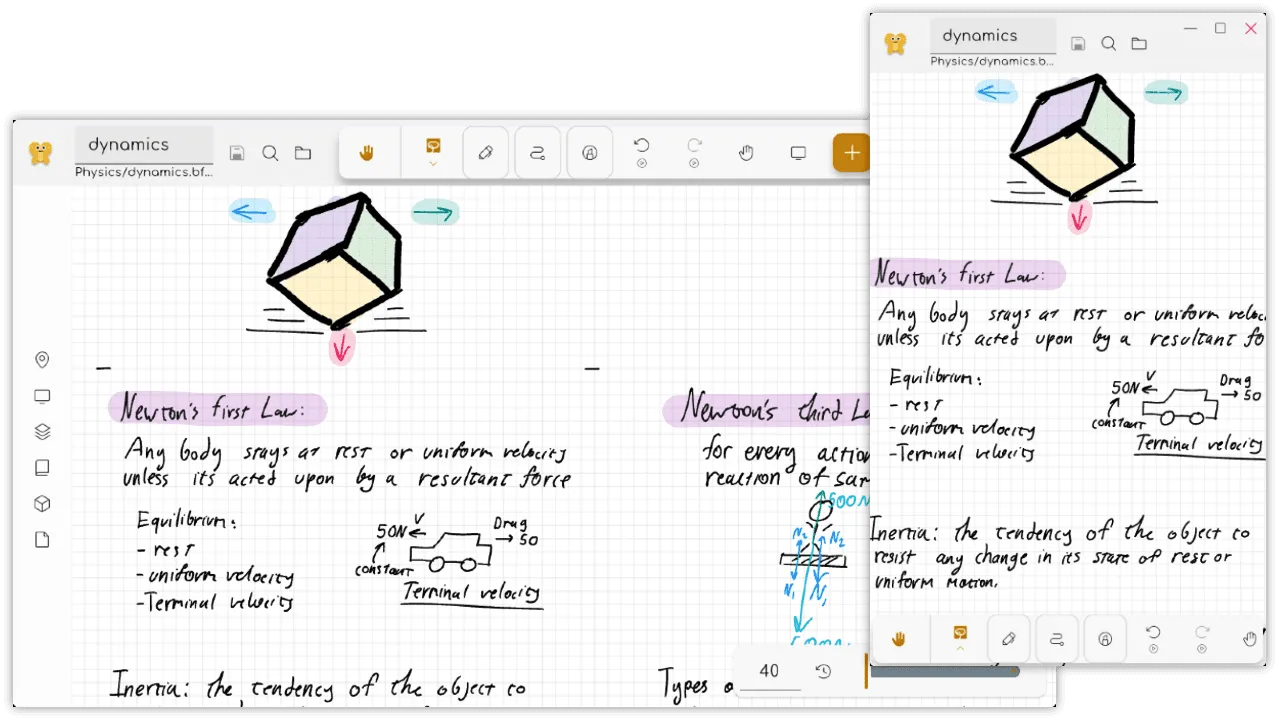 dynamics
Physics/dynamics.bf...
Newton's first Law:
Any body stays at rest or uniform velocity
unless its acted upon by a resultant force
Equilibrium:
- rest
- uniform velocity
- Terminal velocity
V
50N
constant
Drag
50
Terminal velocity
Inertia: the tendency of the object to
Newoon's third
for every action
reaction of
500N
N2
N2
N1
N1
Types
40
dynamics
Physics/dynamics.b...
Newton's first Law:
Any body stays at rest or uniform
unless its acted upon by a resultant
Equilibrium:
- rest
- uniform velocity
- Terminal velocity
V
50N
constant
Drag
50
Terminal velocity
Inertia: the tendency of the object to
resist any change in its state of rest or
uniform motion.